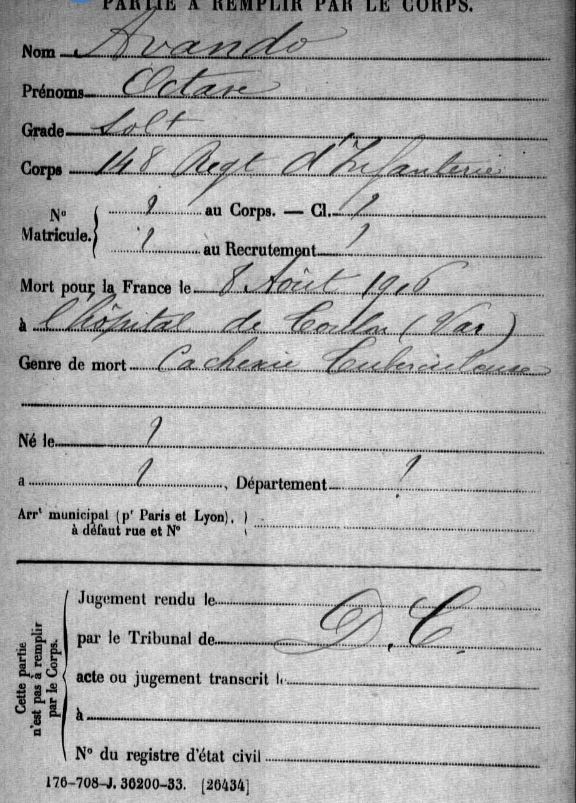 PARTIE À REMPLIR PAR LE CORPS.
Nom Avando
Prénoms Octave
Grade Solt
Corps 148 Regt d'Infanterie
No Matricule. { ? au Corps. — Cl. ?
? au Recrutement ?
Mort pour la France le 8 Août 1916
à l'hôpital de Toulon (Var)
Genre de mort Cachexie tuberculeuse
Né le ?
a ? , Département ?
Arrt municipal (pr Paris et Lyon), }
à défaut rue et No
Cette partie n'est pas à remplir par le Corps.
Jugement rendu le
par le Tribunal de D. C.
acte ou jugement transcrit le
à
No du registre d'état civil
176-708-J. 36200-33. [26434]